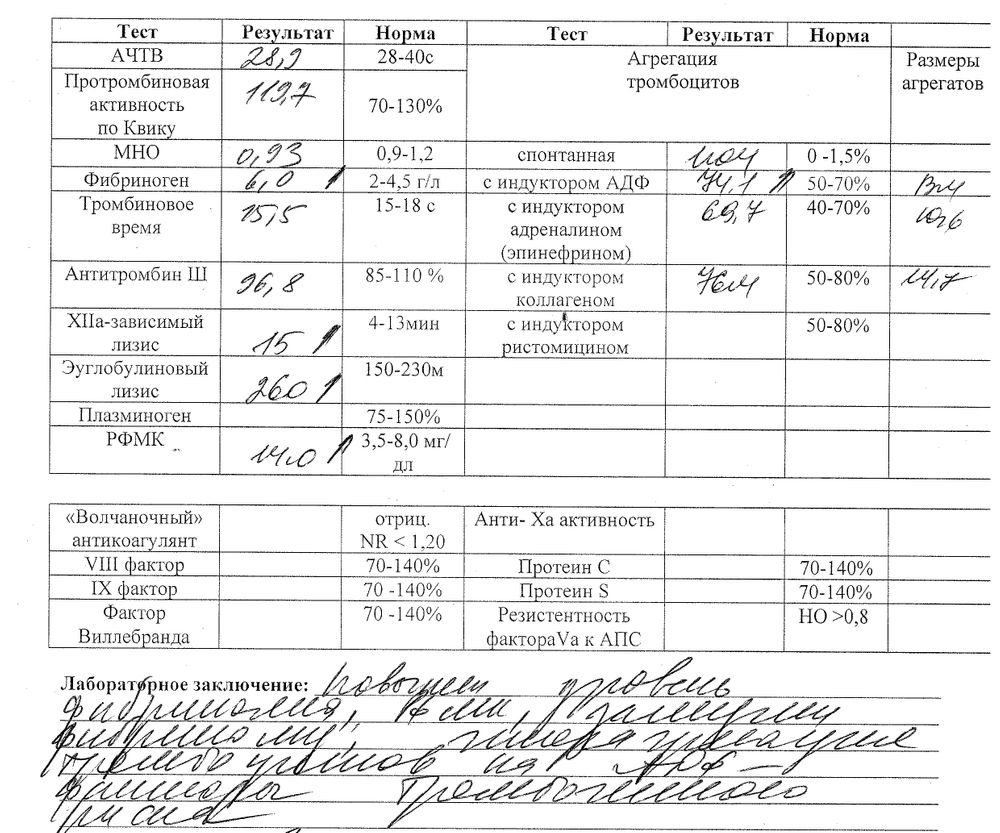 Тест Результат Норма Тест Результат Норма
АЧТВ 28,9 28-40с Агрегация Размеры
тромбоцитов агрегатов
Протромбиновая 119,7
активность 70-130%
по Квику
МНО 0,93 0,9-1,2 спонтанная 0 -1,5%
Фибриноген 6,0 ↑ 2-4,5 г/л с индуктором АДФ 74,1 ↑ 50-70%
Тромбиновое 15,5 15-18 с с индуктором 69,7 40-70%
время адреналином
(эпинефрином)
Антитромбин Ш 96,8 85-110 % с индуктором 50-80%
коллагеном
XIIа-зависимый 4-13мин с индуктором 50-80%
лизис 15 ↑ ристомицином
Эуглобулиновый 150-230м
лизис 260 ↑
Плазминоген 75-150%
РФМК 14,0 ↑ 3,5-8,0 мг/
дл
«Волчаночный» отриц. Анти- Ха активность
антикоагулянт NR < 1,20
VIII фактор 70-140% Протеин С 70-140%
IX фактор 70 -140% Протеин S 70-140%
Фактор 70 -140% Резистентность НО >0,8
Виллебранда фактораVa к АПС
Лабораторное заключение: Повышен уровень
фибриногена,
гиперагрегация
тромбоцитов на АДФ –
факторы тромбогенного
риска